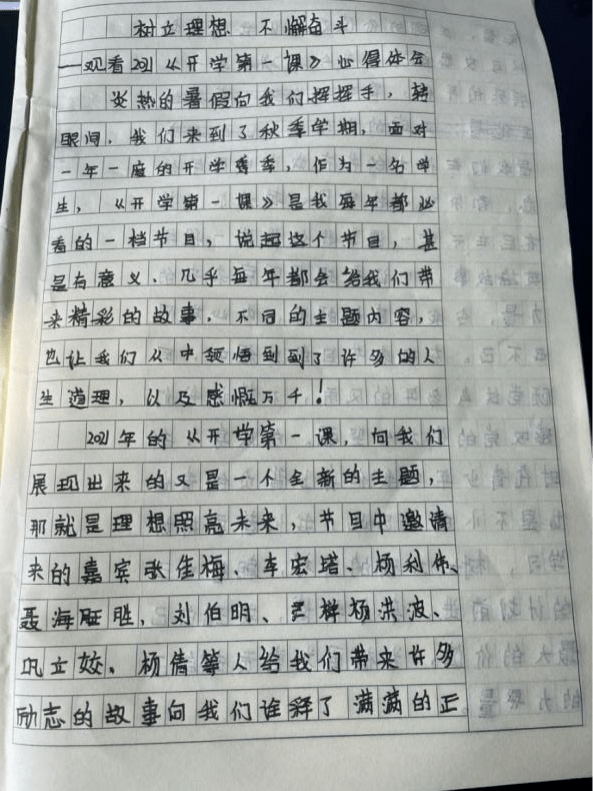 树立理想 不懈奋斗
——观看2021《开学第一课》心得体会
炎热的暑假向我们挥挥手，转
眼间，我们来到了秋季学期，面对
一年一度的开学季，作为一名学
生，《开学第一课》是我每年都必
看的一档节目，说起这个节目，甚
是有意义、几乎每年都会给我们带
来精彩的故事，不同的主题内容，
也让我们从中领悟到到了许多的人
生道理，以及感慨万千！
2021年的《开学第一课，向我们
展现出来的又是一个全新的主题，
那就是理想照亮未来，节目中邀请
来的嘉宾张佳梅、车宏塔、杨利伟、
聂海胜，刘伯明、杨洪波、
巩立姣、杨倩等人给我们带来许多
励志的故事向我们诠释了满满的正